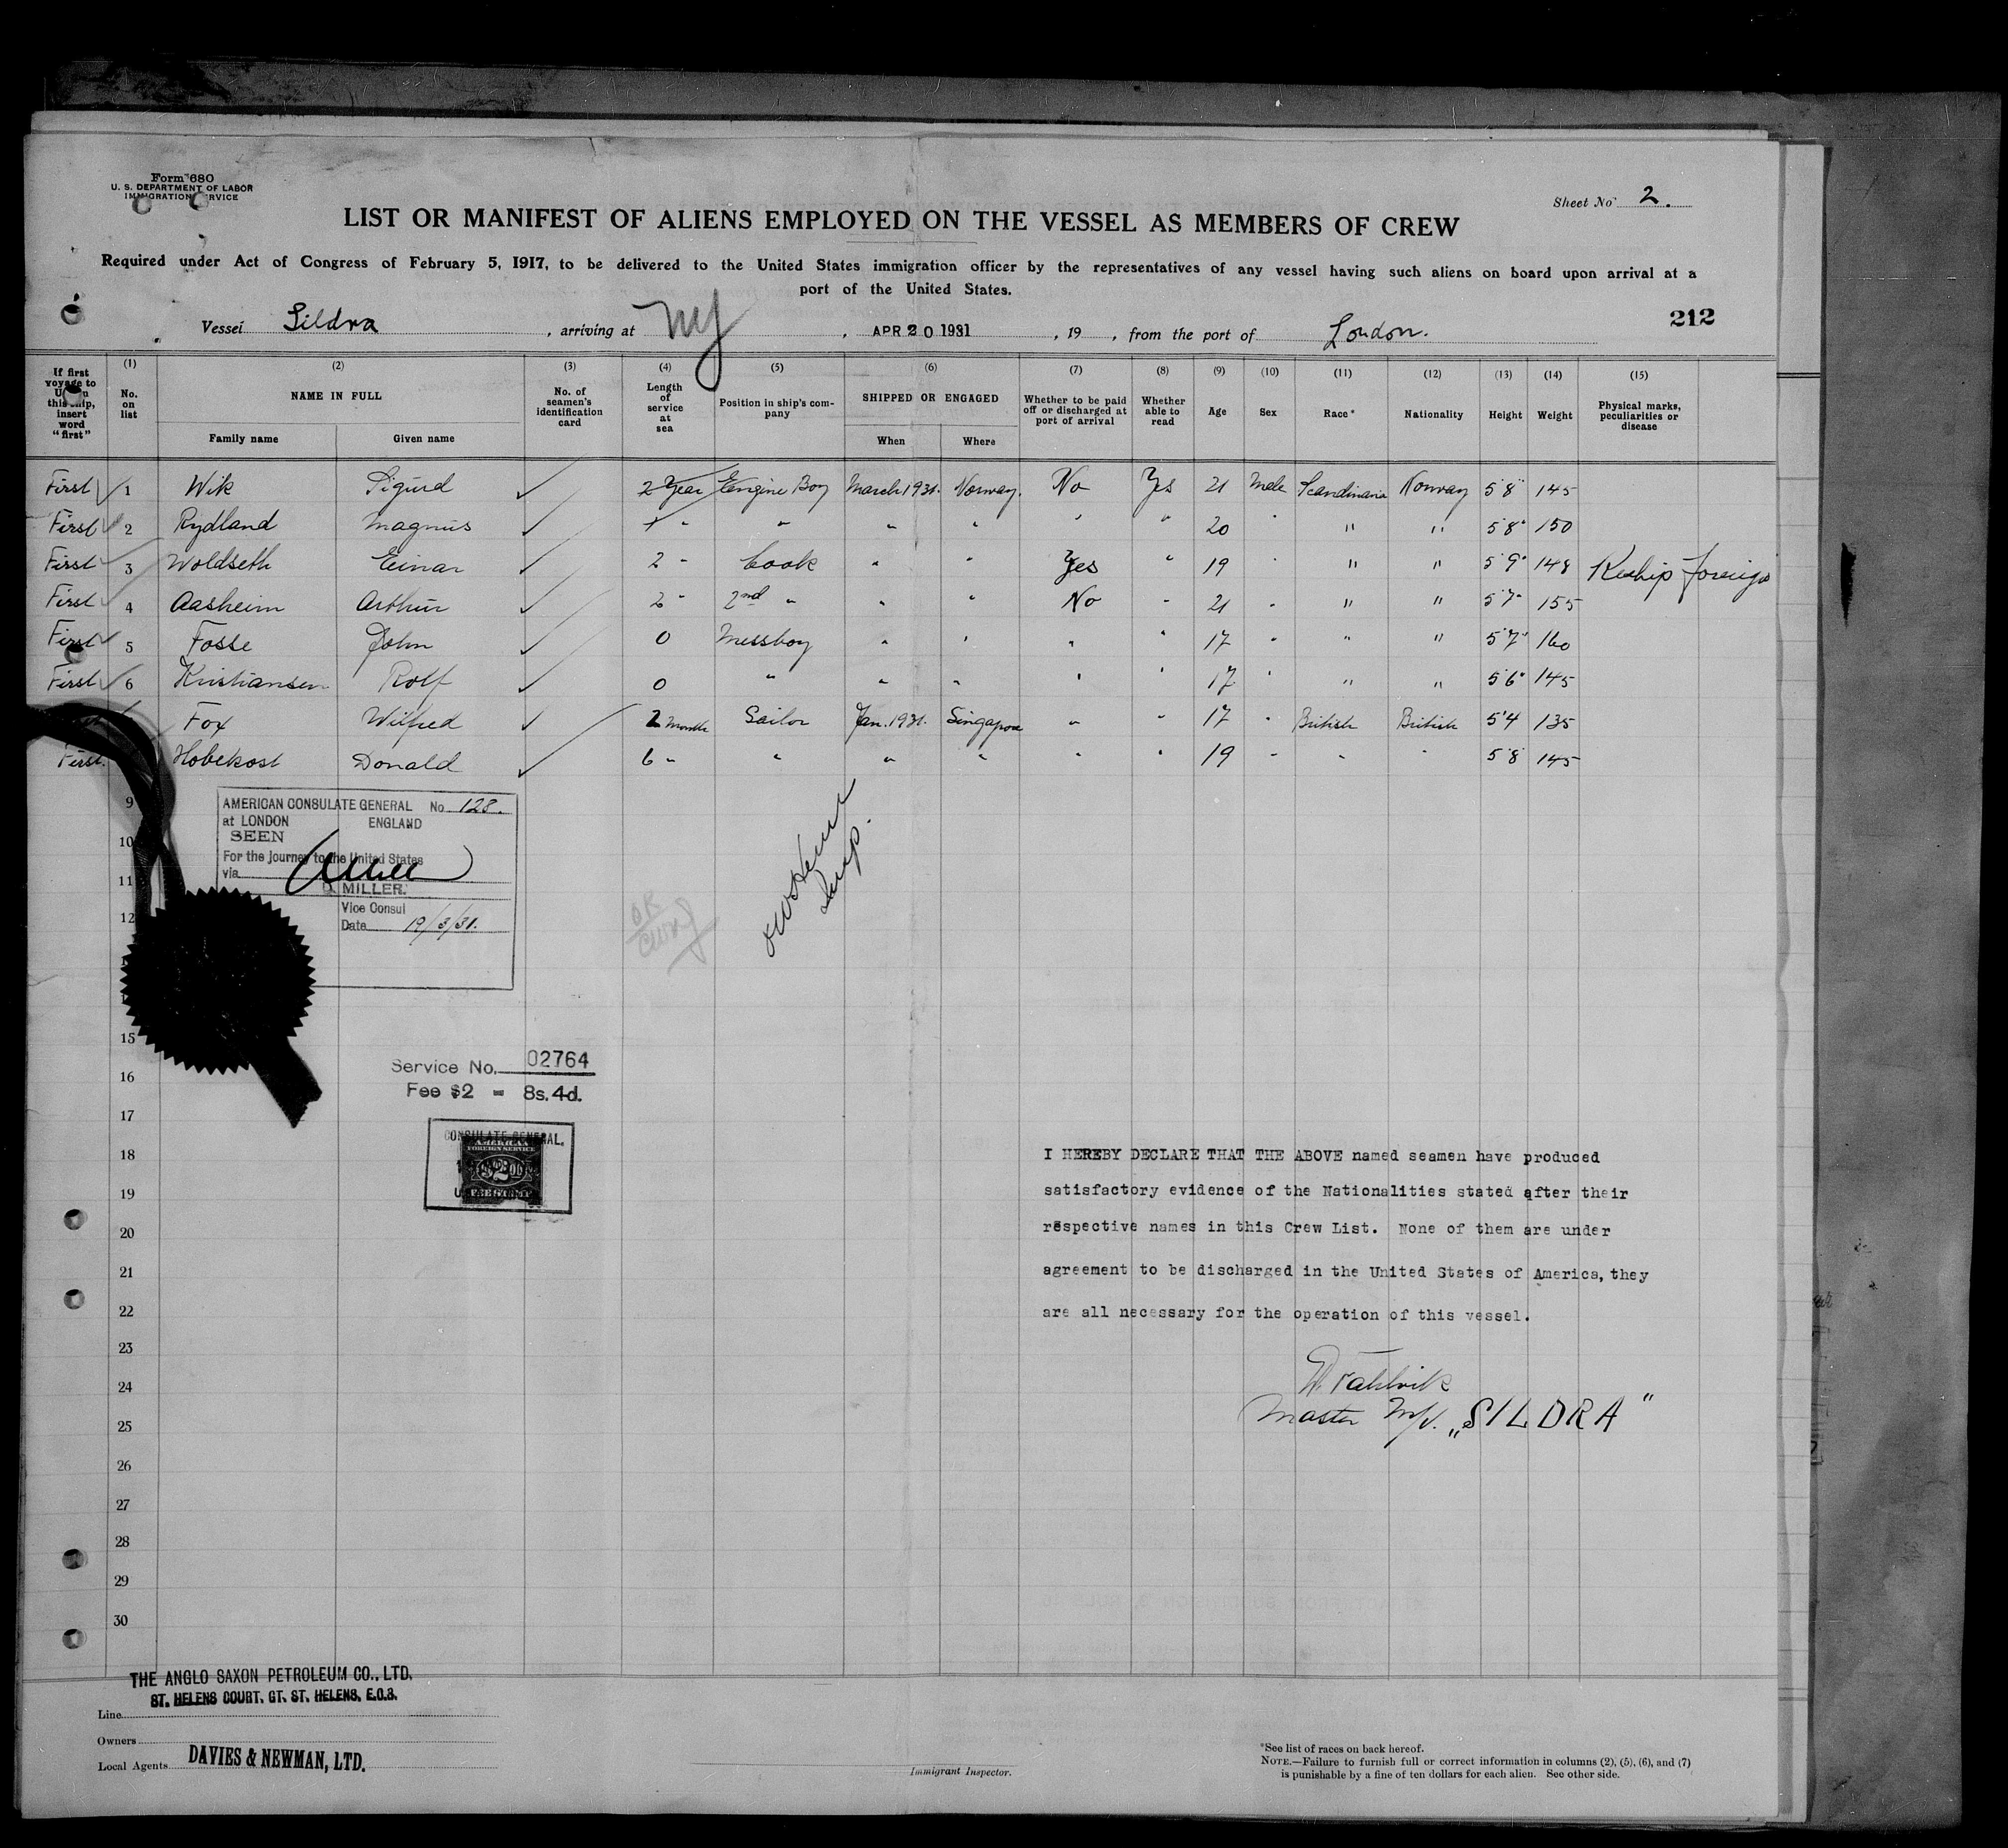 Form 680
U. S. DEPARTMENT OF LABOR
IMMIGRATION SERVICE
Sheet No 2.
LIST OR MANIFEST OF ALIENS EMPLOYED ON THE VESSEL AS MEMBERS OF CREW
Required under Act of Congress of February 5, 1917, to be delivered to the United States immigration officer by the representatives of any vessel having such aliens on board upon arrival at a
port of the United States.
212
Vessel Sildra, arriving at NY, APR 20 1931, 19 , from the port of London.
If first voyage to U.S. on this ship, insert word "first"
(1) No. on list
(2) NAME IN FULL
Family name Given name
(3) No. of seamen's identification card
(4) Length of service at sea
(5) Position in ship's company
(6) SHIPPED OR ENGAGED
When Where
(7) Whether to be paid off or discharged at port of arrival
(8) Whether able to read
(9) Age
(10) Sex
(11) Race*
(12) Nationality
(13) Height
(14) Weight
(15) Physical marks, peculiarities or disease
First 1 Wik Sigurd 2 Year Engine Boy March 1931. Norway. No Yes 21 Male Scandinavia Norway 5'8" 145
First 2 Rydland Magnus " " " " " " 20 " " " 5'8" 150
First 3 Woldseth Einar 2 " Cook " " Yes " 19 " " " 5'9" 148 Reship foreign
First 4 Aasheim Arthur 2 " 2nd " " " No " 21 " " " 5'7" 155
First 5 Fosse John 0 Messboy " " " " 17 " " " 5'7" 160
First 6 Kristiansen Rolf 0 " " " " " 17 " " " 5'6" 145
Fox Wilfred 2 month Sailor Jan. 1931. Singapore " " 17 " British British 5'4 135
First. Hobekost Donald 6 " " " " " " 19 " " " 5'8" 145
9
10
11
12
15
16
17
18
19
20
21
22
23
24
25
26
27
28
29
30
AMERICAN CONSULATE GENERAL No 128.
at LONDON ENGLAND
SEEN
For the journey to the United States
via
D. MILLER.
Vice Consul
Date 19/3/31.
OK
Insp.
Service No. 02764
Fee $2 = 8s. 4d.
CONSULATE GENERAL.
FOREIGN SERVICE
I HEREBY DECLARE THAT THE ABOVE named seamen have produced
satisfactory evidence of the Nationalities stated after their
respective names in this Crew List. None of them are under
agreement to be discharged in the United States of America, they
are all necessary for the operation of this vessel.
Master M/V. „SILDRA"
THE ANGLO SAXON PETROLEUM CO., LTD.
ST. HELENS COURT, GT. ST. HELENS, E.C.3.
Line
Owners
Local Agents DAVIES & NEWMAN, LTD.
Immigrant Inspector.
*See list of races on back hereof.
NOTE.—Failure to furnish full or correct information in columns (2), (5), (6), and (7)
is punishable by a fine of ten dollars for each alien. See other side.